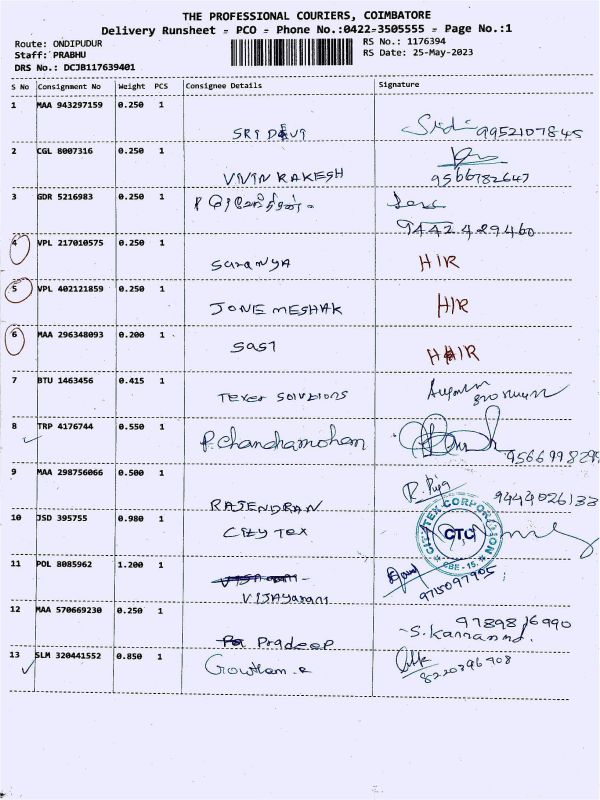 THE PROFESSIONAL COURIERS, COIMBATORE
Delivery Runsheet - PCO - Phone No.:0422-3505555 - Page No.:1
Route: ONDIPUDUR RS No.: 1176394
Staff: PRABHU RS Date: 25-May-2023
DRS No.: DCJB117639401
S No Consignment No Weight PCS Consignee Details Signature
1 MAA 943297159 0.250 1
SRI DEVI 9952107845
2 CGL 8007316 0.250 1
VIVIN RAKESH 9566782647
3 GDR 5216983 0.250 1
9442429460
4 VPL 217010575 0.250 1
Saranya HIR
5 VPL 402121859 0.250 1
JONE MESHAK HIR
6 MAA 296348093 0.200 1
SASI HIR
7 BTU 1463456 0.415 1
Texer Solutions
8 TRP 4176744 0.550 1
P. Chandhamohan
9 MAA 298756066 0.500 1
RAJENDRAN R. Priya 9444026133
10 JSD 395755 0.980 1
City Tex
CITY TEX CORPORATION
CTC
CBE - 15.
11 POL 8085962 1.200 1
VIJAYarani 9715097905
12 MAA 570669230 0.250 1
9789816990
Pradeep S. Kannamma.
13 SLM 320441552 0.850 1
Gowtham. R 8220396908